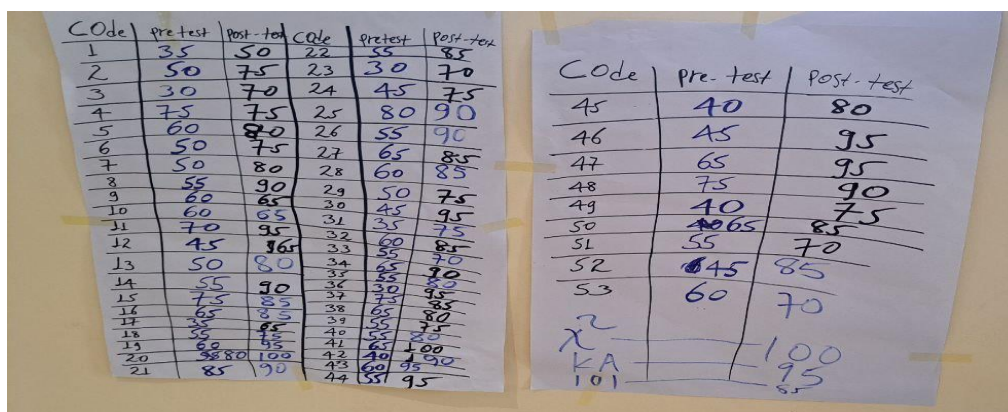 Code pre test Post-test Code pretest Post-test
1 35 50 22 55 85
2 50 75 23 30 70
3 30 70 24 45 75
4 75 75 25 80 90
5 60 26 55 90
6 50 75 27 65 85
7 50 80 28 60 85
8 55 90 29 50 75
9 60 65 30 45 95
10 60 65 31 35 75
11 70 95 32 60 85
12 45 65 33 55 70
13 50 80 34 65 90
14 55 90 35 55 80
15 75 85 36 30 95
16 65 85 37 75 85
17 35 65 38 65 80
18 55 75 39 55 75
19 60 95 40 55 80
20 80 100 41 65 100
21 85 90 42 40 90
43 60 95
44 55 95
Code pre-test Post-test
45 40 80
46 45 95
47 65 95
48 75 90
49 40 75
50 65 85
51 55 70
52 45 85
53 60 70
x² 100
KA 95
101 85